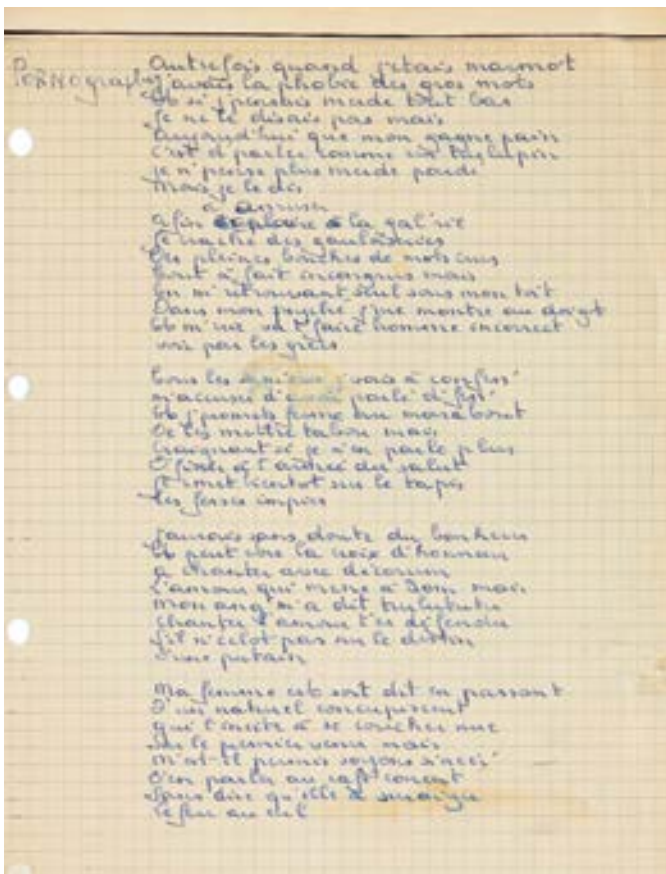 PORNographe
Autrefois quand j'étais marmot
J'avais la phobie des gros mots
Et si j'pensais merde tout bas
Je ne le disais pas mais
Aujourd'hui que mon gagne pain
C'est d'parler comme un turlupin
Je n'pense plus merde pardi
Mais je le dis
à amuser
Afin la gal'rie
Je crache des gauloiseries
Des pleines bouches de mots crus
Tout à fait incongrus mais
En m'retrouvant seul sous mon toit
Dans mon psyché j'me montre au doigt
Et m'crie va t'faire homme incorrect
voir par les grecs
Tous les sam'dis j'vais à confess'
m'accuser d'avoir parlé d'fess'
Et j'promets ferme au marabout
De les mettre tabou mais
Craignant si je n'en parle plus
D'finir à l'armée du salut
Je r'mets bientôt sur le tapis
les fesses impies
J'aurais sans doute du bonheur
Et peut être la croix d'honneur
à chanter avec décorum
L'amour qui mène à Rom' mais
Mon ang' m'a dit turlututu
Chanter l'amour t'es défendu
S'il n'éclot pas sur le destin
D'une putain
Ma femme est soit dit en passant
D'un naturel concupiscent
qui l'incite à se coucher nue
Sous le premier venu mais
M'est-il permis soyons sincèr'
D'en parler au caf'concert
Sans dire qu'elle a suraigu
le feu au cul